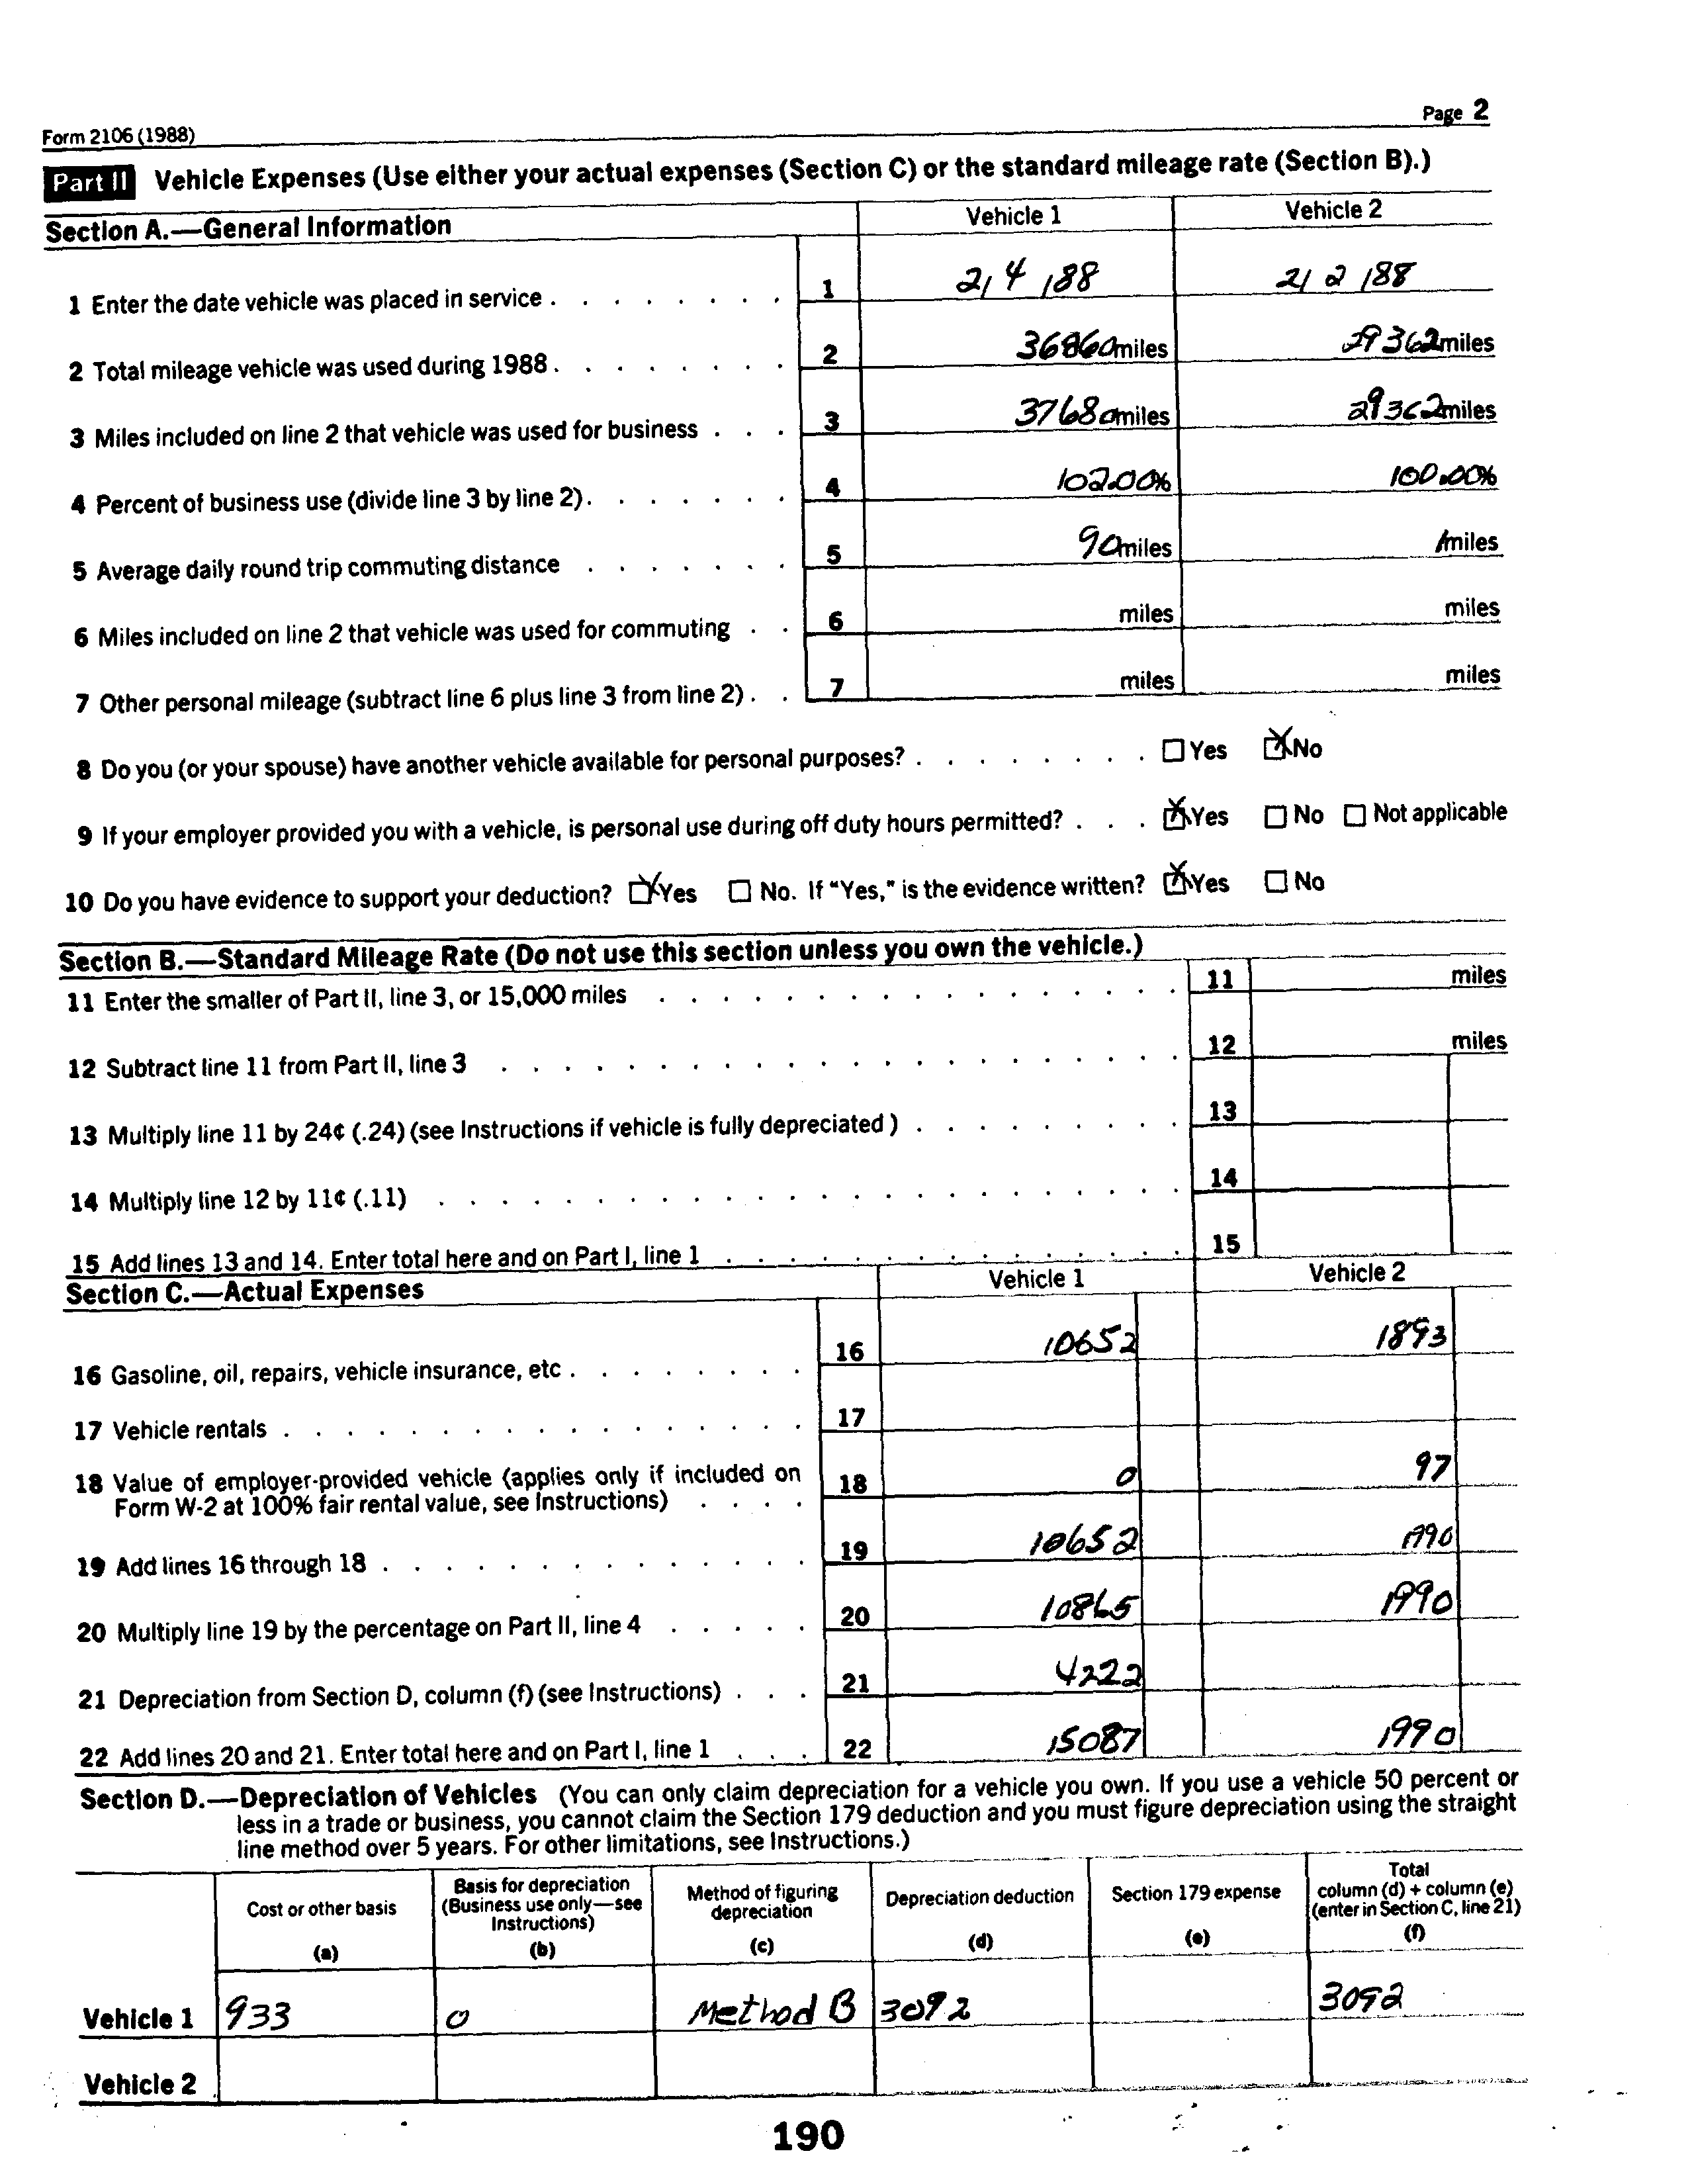 Form 2106 (1988)
Page 2
Part II Vehicle Expenses (Use either your actual expenses (Section C) or the standard mileage rate (Section B).)
Section A.—General Information Vehicle 1 Vehicle 2
1 Enter the date vehicle was placed in service . . . . . . . . 1 2/4/88 2/2/88
2 Total mileage vehicle was used during 1988 . . . . . . . . 2 36860 miles 29362 miles
3 Miles included on line 2 that vehicle was used for business . . . 3 37680 miles 29362 miles
4 Percent of business use (divide line 3 by line 2) . . . . . . . 4 102.00% 100.00%
5 Average daily round trip commuting distance . . . . . . . 5 90 miles 1 miles
6 Miles included on line 2 that vehicle was used for commuting . . 6 miles miles
7 Other personal mileage (subtract line 6 plus line 3 from line 2) . . 7 miles miles
8 Do you (or your spouse) have another vehicle available for personal purposes? . . . . . . . . ☐ Yes ☒ No
9 If your employer provided you with a vehicle, is personal use during off duty hours permitted? . . . ☒ Yes ☐ No ☐ Not applicable
10 Do you have evidence to support your deduction? ☒ Yes ☐ No. If "Yes," is the evidence written? ☒ Yes ☐ No
Section B.—Standard Mileage Rate (Do not use this section unless you own the vehicle.)
11 Enter the smaller of Part II, line 3, or 15,000 miles . . . . . . . . . . . . . . . . . 11 miles
12 Subtract line 11 from Part II, line 3 . . . . . . . . . . . . . . . . . . . . . . 12 miles
13 Multiply line 11 by 24¢ (.24) (see Instructions if vehicle is fully depreciated ) . . . . . . . . . 13
14 Multiply line 12 by 11¢ (.11) . . . . . . . . . . . . . . . . . . . . . . . . 14
15 Add lines 13 and 14. Enter total here and on Part I, line 1 . . . . . . . . . . . . . . . 15
Section C.—Actual Expenses Vehicle 1 Vehicle 2
16 Gasoline, oil, repairs, vehicle insurance, etc . . . . . . . . 16 10652 1893
17 Vehicle rentals . . . . . . . . . . . . . . . . . 17
18 Value of employer-provided vehicle (applies only if included on
Form W-2 at 100% fair rental value, see Instructions) . . . . 18 0 97
19 Add lines 16 through 18 . . . . . . . . . . . . . . 19 10652 1990
20 Multiply line 19 by the percentage on Part II, line 4 . . . . . 20 10865 1990
21 Depreciation from Section D, column (f) (see Instructions) . . . 21 4222
22 Add lines 20 and 21. Enter total here and on Part I, line 1 . . . 22 15087 1990
Section D.—Depreciation of Vehicles (You can only claim depreciation for a vehicle you own. If you use a vehicle 50 percent or
less in a trade or business, you cannot claim the Section 179 deduction and you must figure depreciation using the straight
line method over 5 years. For other limitations, see Instructions.)
Cost or other basis
(a)
Basis for depreciation
(Business use only—see
Instructions)
(b)
Method of figuring
depreciation
(c)
Depreciation deduction
(d)
Section 179 expense
(e)
Total
column (d) + column (e)
(enter in Section C, line 21)
(f)
Vehicle 1 933 0 Method B 3092 3092
Vehicle 2
190